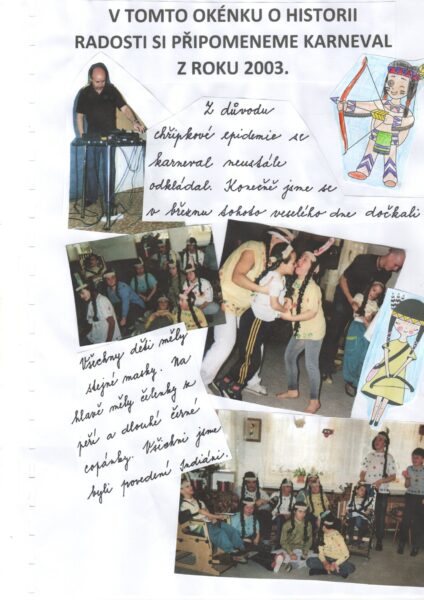 V TOMTO OKÉNKU O HISTORII
RADOSTI SI PŘIPOMENEME KARNEVAL
Z ROKU 2003.
Z důvodu
chřipkové epidemie se
karneval neustále
odkládal. Konečně jsme se
v březnu tohoto veselého dne dočkali
Všechny děti měly
stejné masky. Na
hlavě měly čelenky z
peří a dlouhé černé
copánky. Všichni jsme
byli povedení Indiáni.